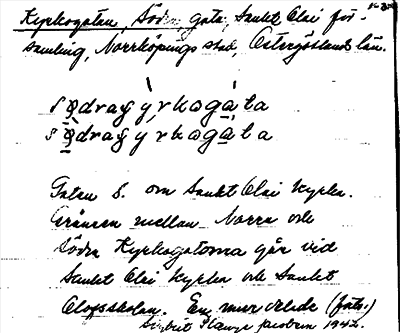 Kyrkogatan, Södra, gata, Sankt Olai för-
samling, Norrköpings stad, Östergötlands län.
sødraçy̌rkogàta
sø̀draçy̌rkogàta
Gatan S. om Sankt Olai kyrka.
Gränsen mellan Norra och
Södra Kyrkogatorna går vid
Sankt Olai kyrka och Sankt
Olofsskolan. En mur
1942.